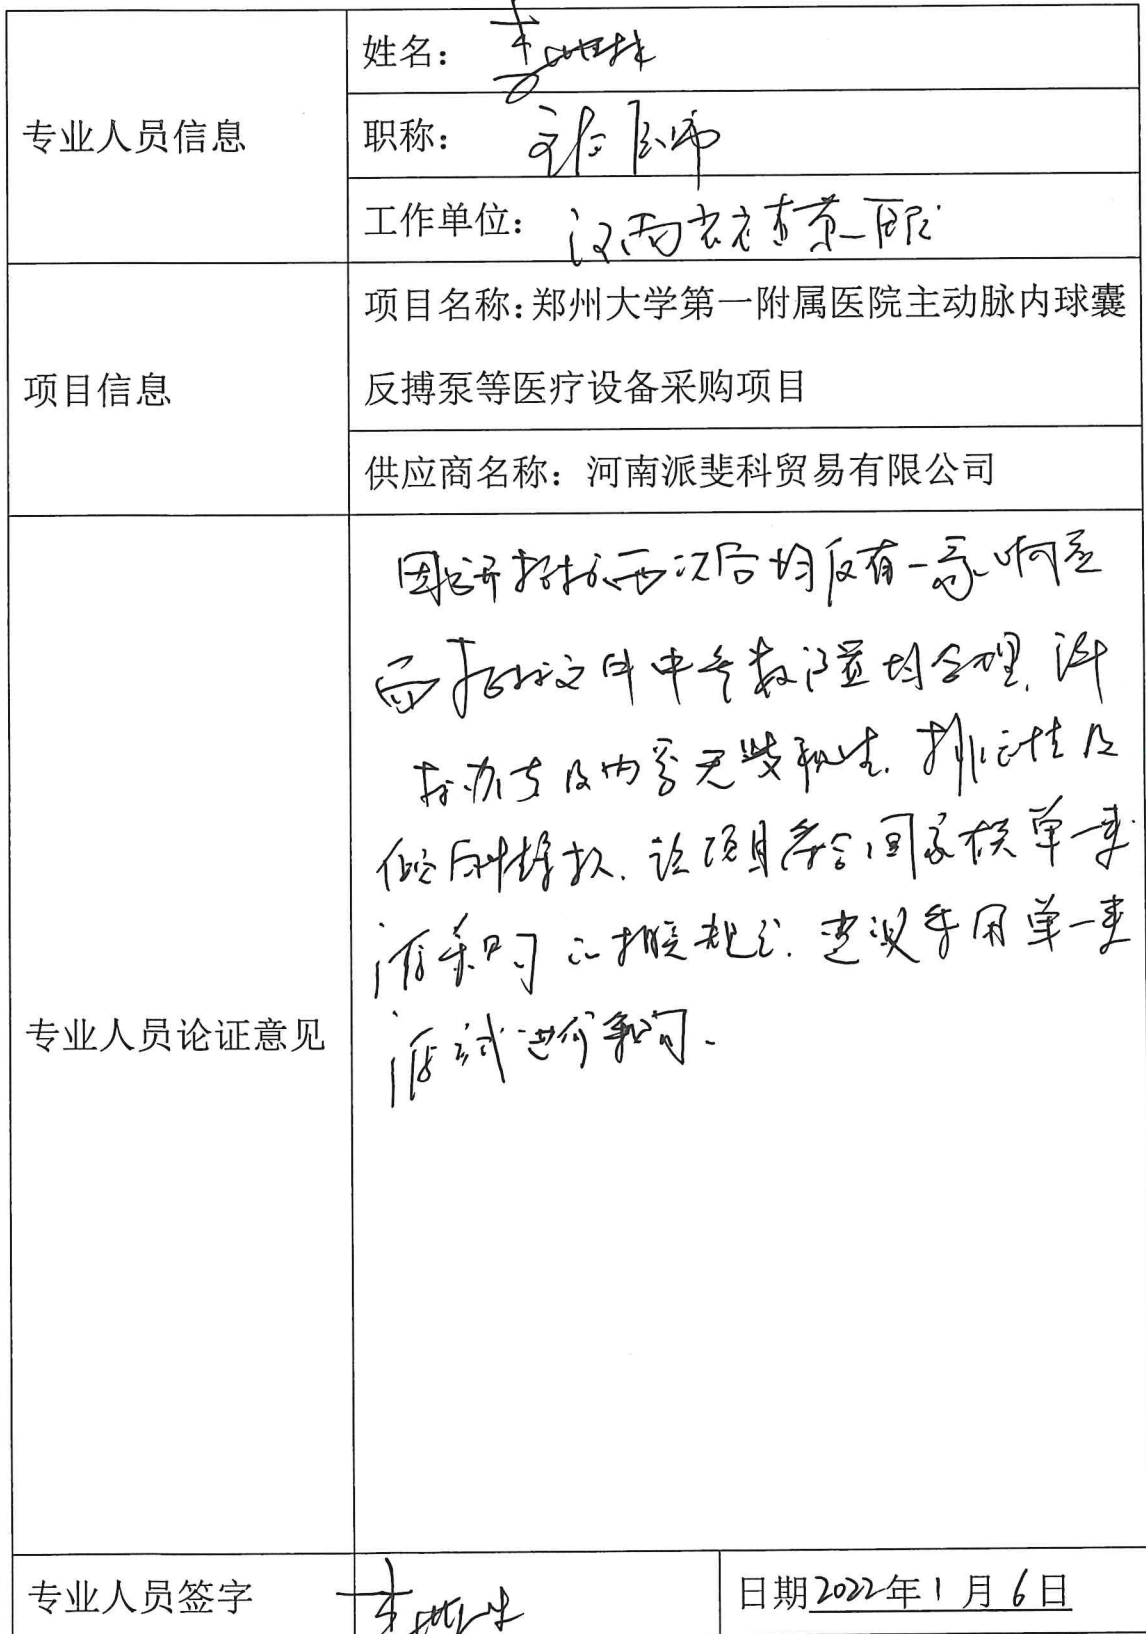 专业人员信息
姓名：李
职称：主任医师
工作单位：河南省 医院
项目信息
项目名称：郑州大学第一附属医院主动脉内球囊
反搏泵等医疗设备采购项目
供应商名称：河南派斐科贸易有限公司
专业人员论证意见
因公开招标两次后均仅有一家响应
而招标文件中参数设置均合理，评
标办法及内容无歧视性，排他性及
倾向性条款。该项目符合国家 单一来
源采购的相关规定。建议采用单一来
源方式进行采购。
专业人员签字
李
日期2022年1月6日